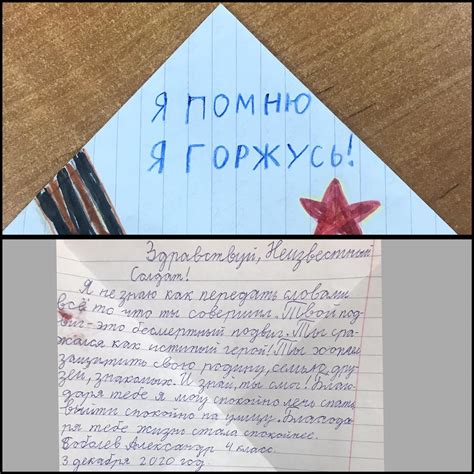 Я ПОМНЮ
Я ГОРЖУСЬ!
Здравствуй, Неизвестный
Солдат!
Я не знаю как передать словами
всё то что ты совершил. Твой под-
виг-это бесмертный подвиг. Ты сра-
жался как истиный герой! Ты хотел
защитить свою родину, семью, дру-
зей, знакомых. И знай, ты смог! Благо-
даря тебе я могу спокойно лечь спать,
выйти спокойно на улицу. Благода-
ря тебе жизнь стала спокойнее.
Александр 4 класс.
3 декабря 2020 год